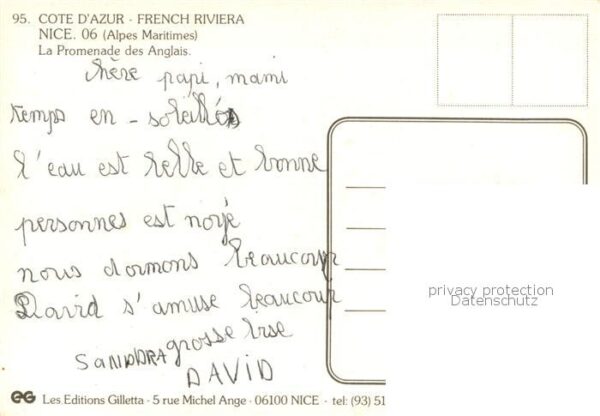 95. COTE D'AZUR - FRENCH RIVIERA
NICE. 06 (Alpes Maritimes)
La Promenade des Anglais.
chère papi, mami
temps en - soleillés
l'eau est belle et bonne
personnes est noyé
nous dormons beaucoup
David s'amuse beaucoup
grosse bise
SANDDRA
DAVID
privacy protection
Datenschutz
EG Les Editions Gilletta - 5 rue Michel Ange - 06100 NICE - tel: (93) 51